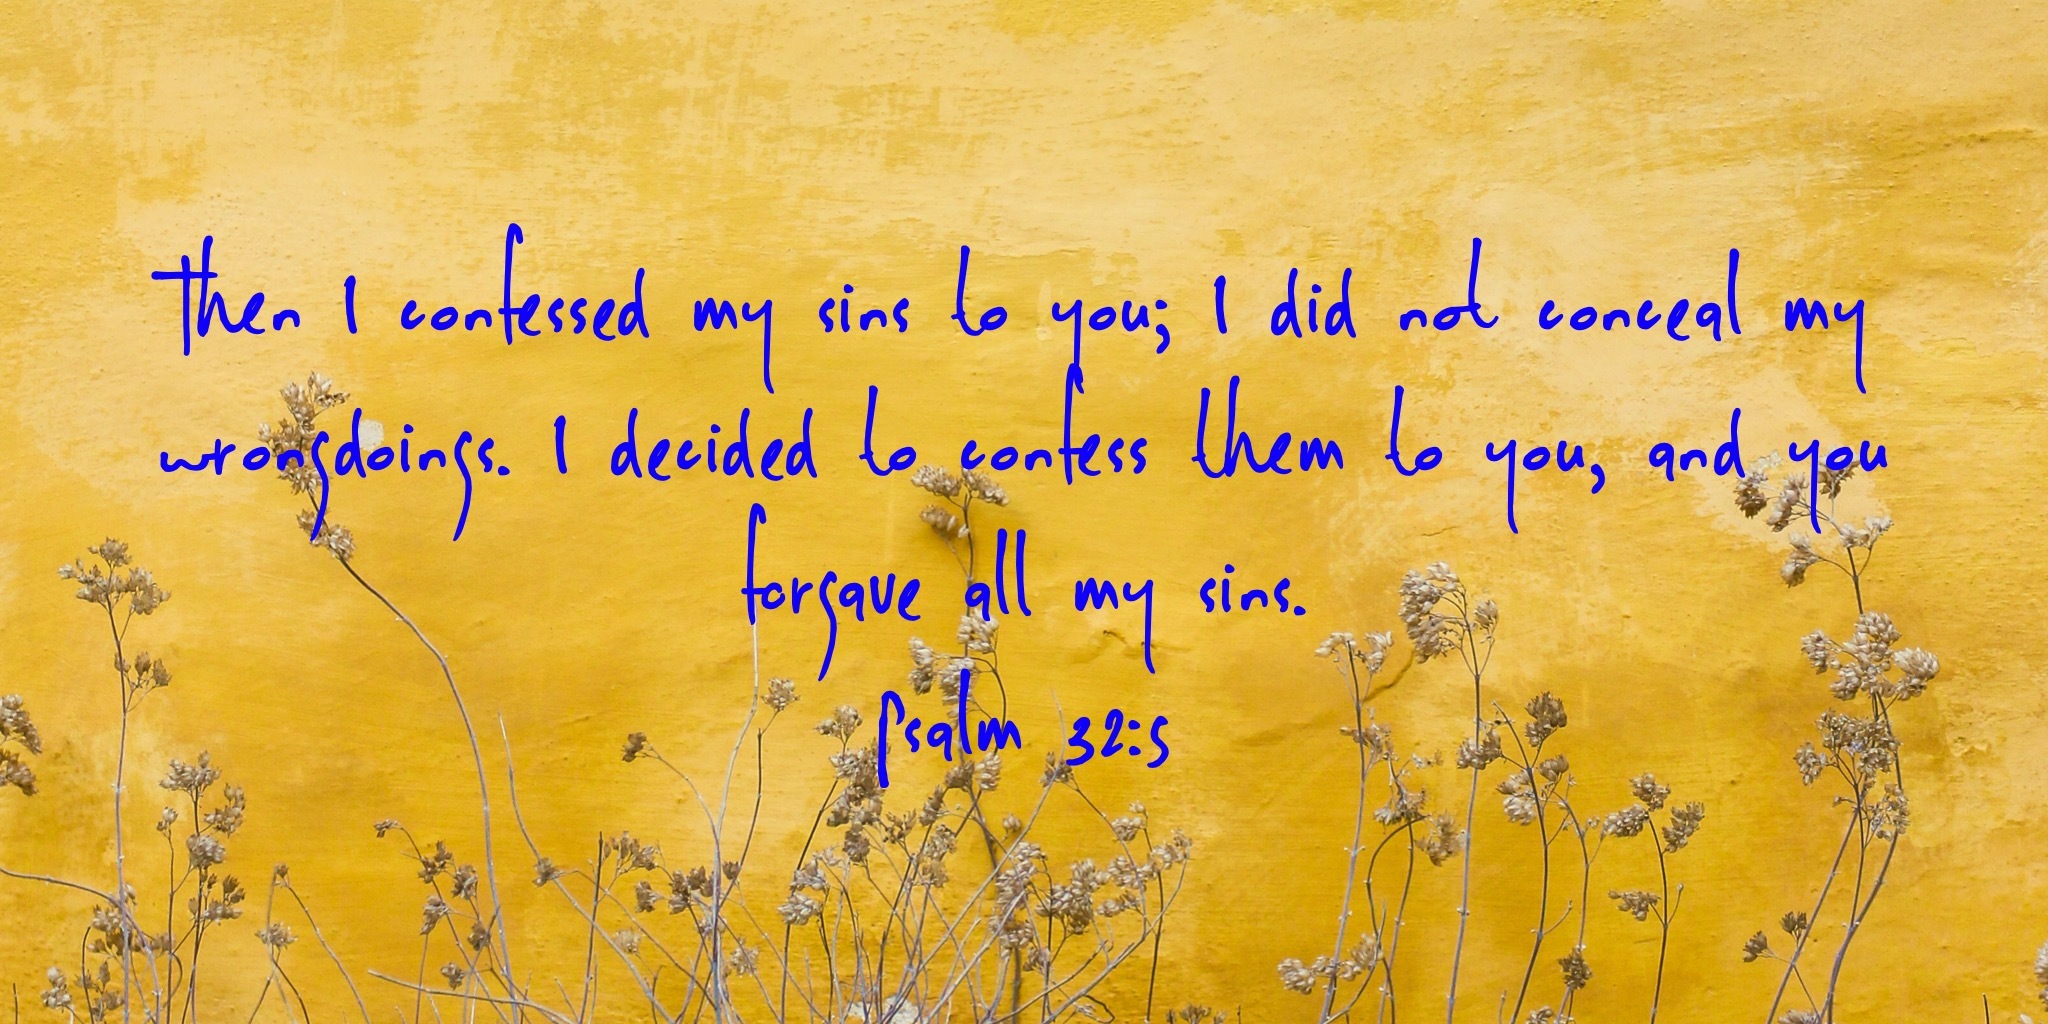 Then I confessed my sins to you; I did not conceal my
wrongdoings. I decided to confess them to you, and you
forgave all my sins.
Psalm 32:5